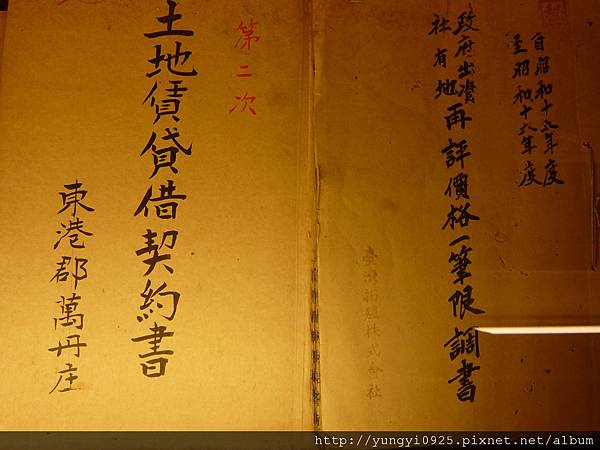 自昭和十六年度
至昭和十六年度
政府出資
社有地
再評價格一筆限調書
臺灣拓殖株式会社
第二次
土地賃貸借契約書
東港郡萬丹庄
http://yungyi0925.pixnet.net/album